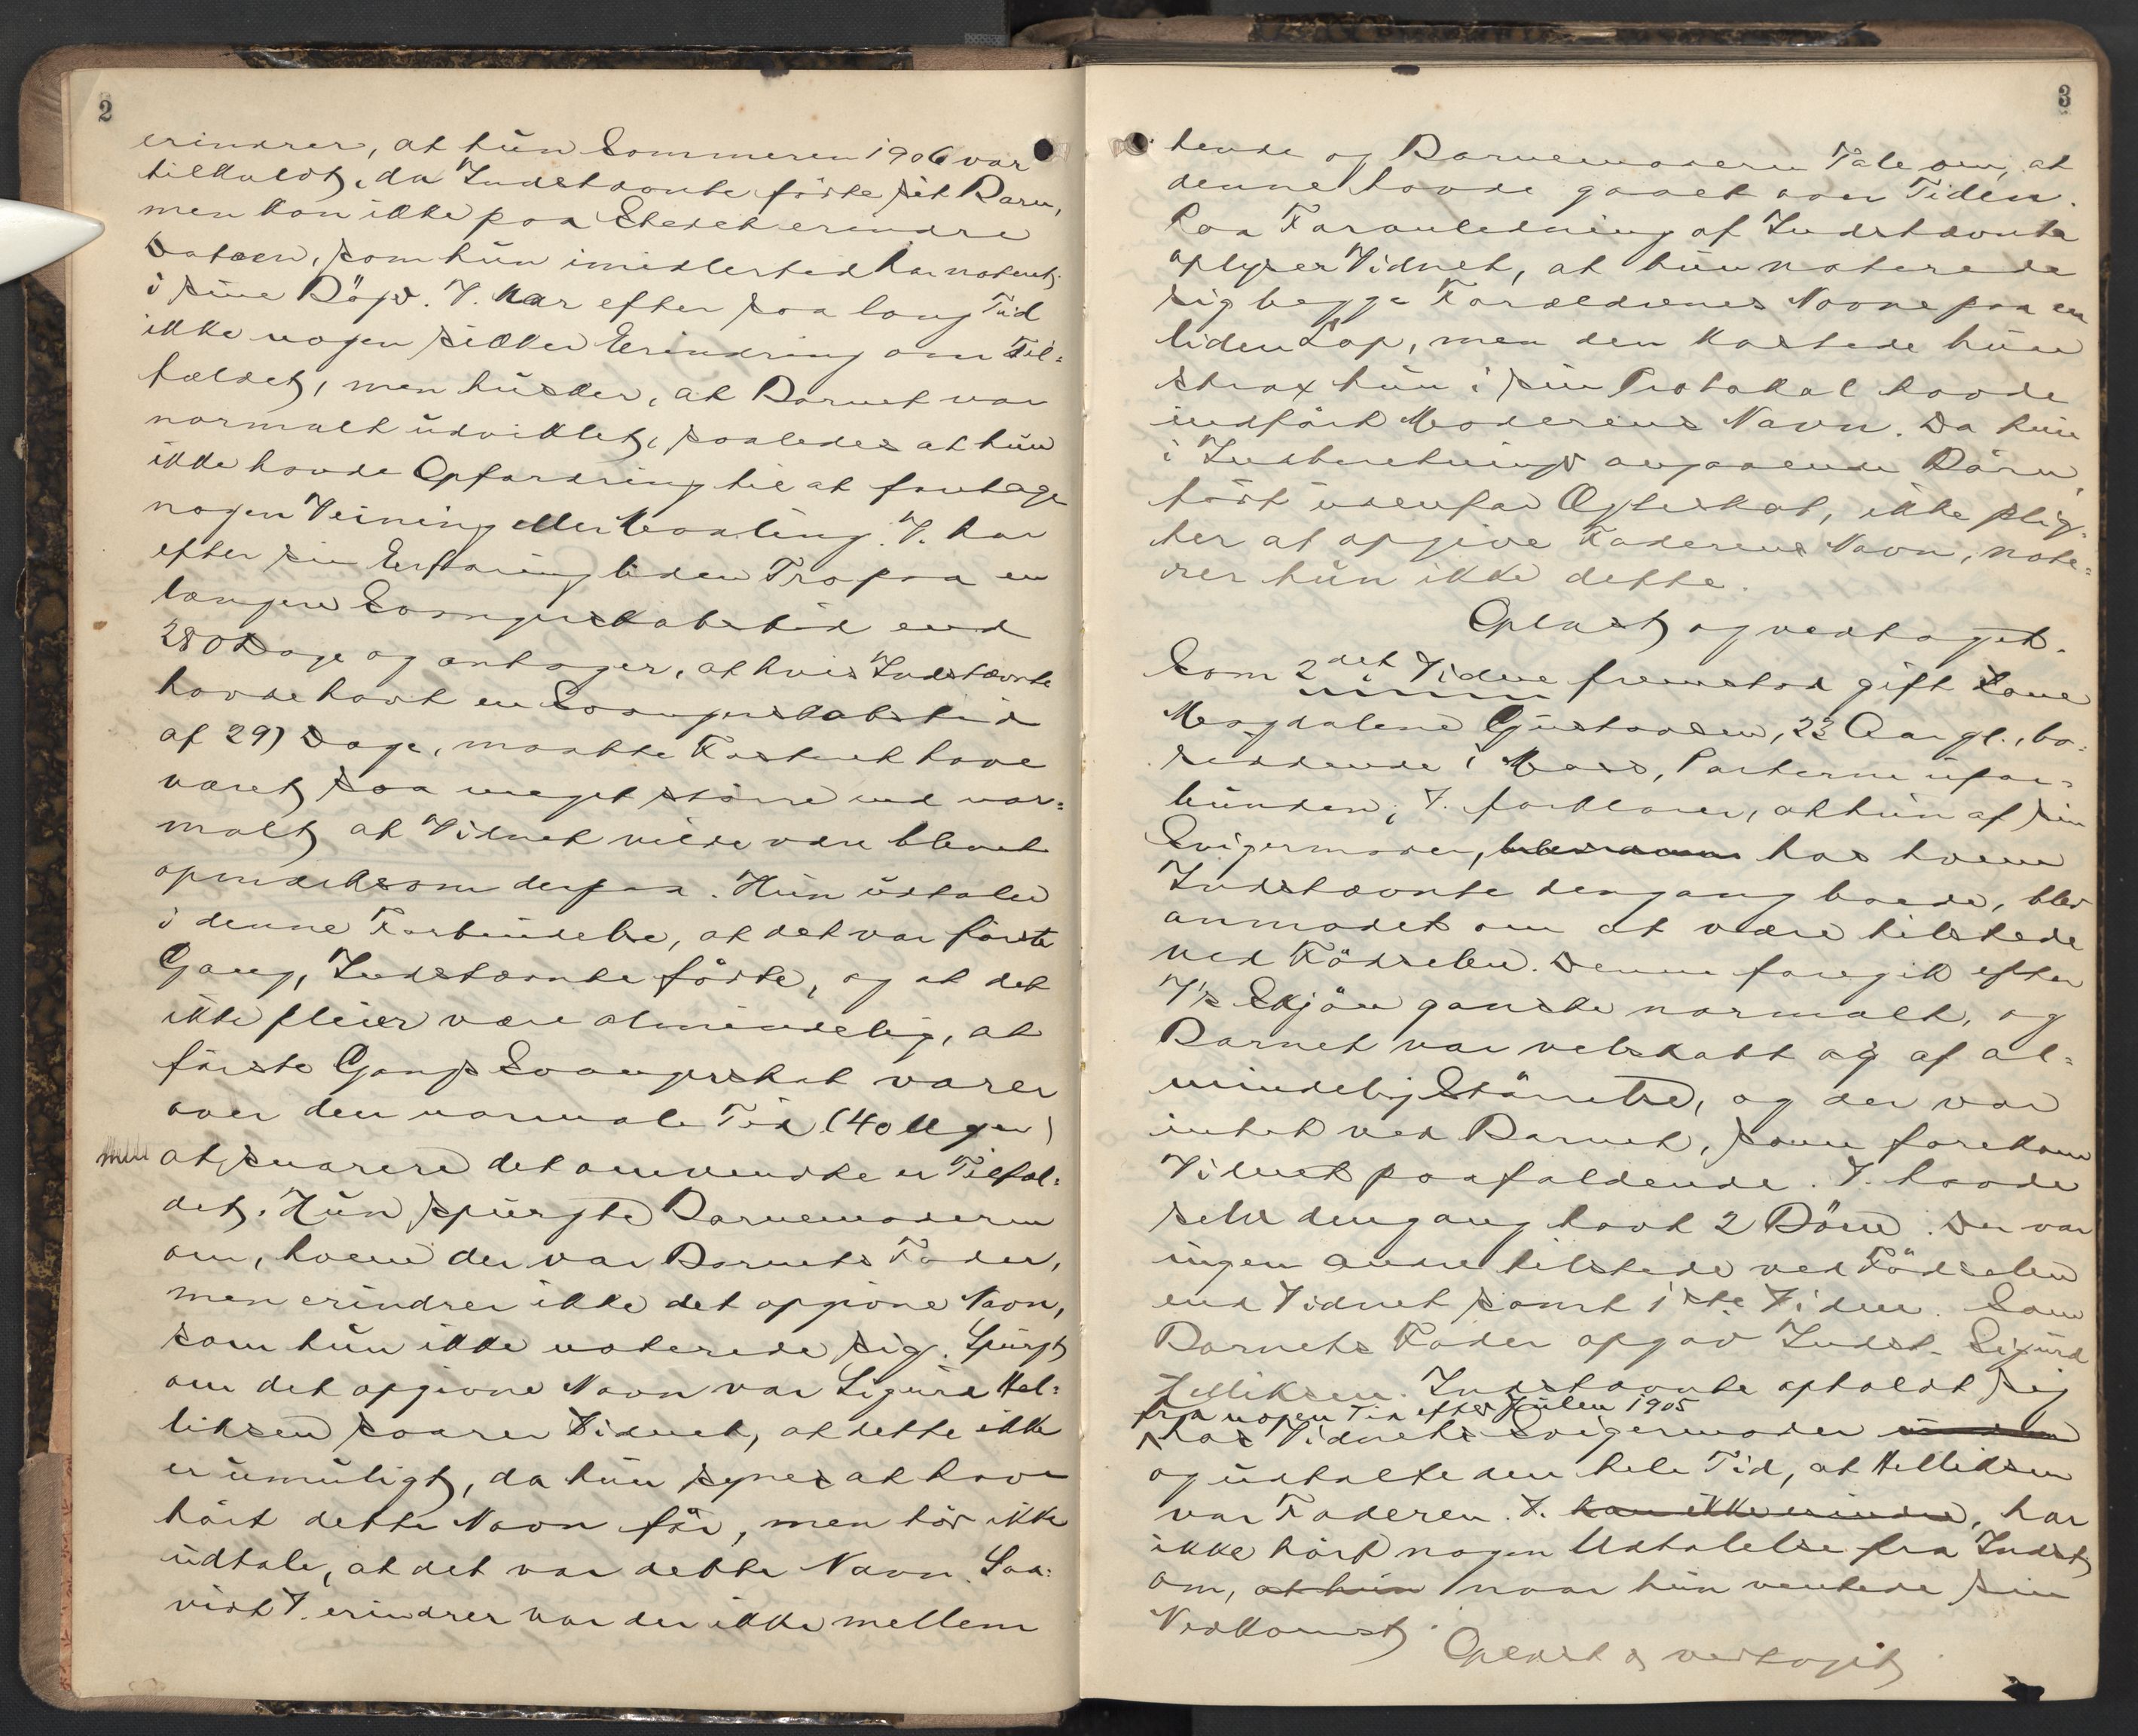 2
erindrer, at hun Sommeren 1906 var
tilkaldt, da Indstevnte fødte sit Barn,
men kan ikke paa Stedet erindre
Datoen, som hun imidlertid har noteret
i sine Bøger. V. har efter saa lang Tid
ikke nogen sikker Erindring om Til=
fældet, men husker, at Barnet var
normalt udviklet, saaledes at hun
ikke havde Opfordring til at foretage
nogen Veining eller Maaling. V. har
efter sin Erfaring liden Tro paa en
længere Svangerskabstid end
280 Dage og antager, at hvis Indstævnte
havde havt en Svangerskabstid
af 297 Dage, maatte Fosteret have
været saa meget større end nor=
malt, at Vidnet vilde være blevet
opmærksom derpaa. Hun udtaler
i denne Forbindelse, at det var første
Gang, Indstævnte fødte, og at det
ikke pleier være almindelig, at
første Gangs Svangerskab varer
over den normale Tid (40 Uger)
at snarere det omvendte er Tilfæl=
det. Hun spurgte Barnemoderen
om, hvem der var Barnets Fader,
men erindrer ikke det opgivne Navn,
som hun ikke noterede sig. Spurgt
om det opgivne Navn var Sigurd Hel=
liksen svarer Vidnet, at dette ikke
er umuligt, da hun synes at have
hørt dette Navn før, men tør ikke
udtale, at det var dette Navn. Saa=
vidt V. erindrer var der ikke mellem
3
hende og Barnemoderen Tale om, at
denne havde gaaet over Tiden.
Paa Foranledning af Indstævnte
oplyser Vidnet, at hun noterede
sig begge Forældrenes Navne paa en
liden Lap, men den kastede hun
strax hun i sin Protokol havde
indført Moderens Navn. Da hun
i Indberetninger angaaende Børn,
født udenfor Ægteskab, ikke plig=
ter at opgive Faderens Navn, note=
rer hun ikke dette.
Oplæst og vedtaget.
Som 2det Vidne fremstod gift Kone
Magdalene Gustavsen, 23 Aar gl., bo=
siddende i Moss, Parterne ufor=
bunden; V. forklarer, at hun af sin
Svigermoder, hos hvem
Indstævnte dengang boede, blev
anmodet om at være tilstede
ved Fødselen. Denne foregik efter
V's Skjøn ganske normalt, og
Barnet var velskabt og af al=
mindelig Størrelse, og der var
intet ved Barnet, som forekom
Vidnet paafaldende. V. havde
selv dengang havt 2 Børn. Der var
ingen andre tilstede ved Fødselen
end Vidnet samt 1ste Vidne. Som
Barnets Fader opgav Indst. Sigurd
Helliksen. Indstævnte opholdt sig
fra nogen Tid efter Julen 1905
hos Vidnets Svigermoder
og udtalte den hele Tid, at Helliksen
var Faderen. V. kan ikke erindre, har
ikke hørt nogen Udtalelse fra Indst.
om, at hun naar hun ventede sin
Nedkomst.
Oplæst og vedtaget